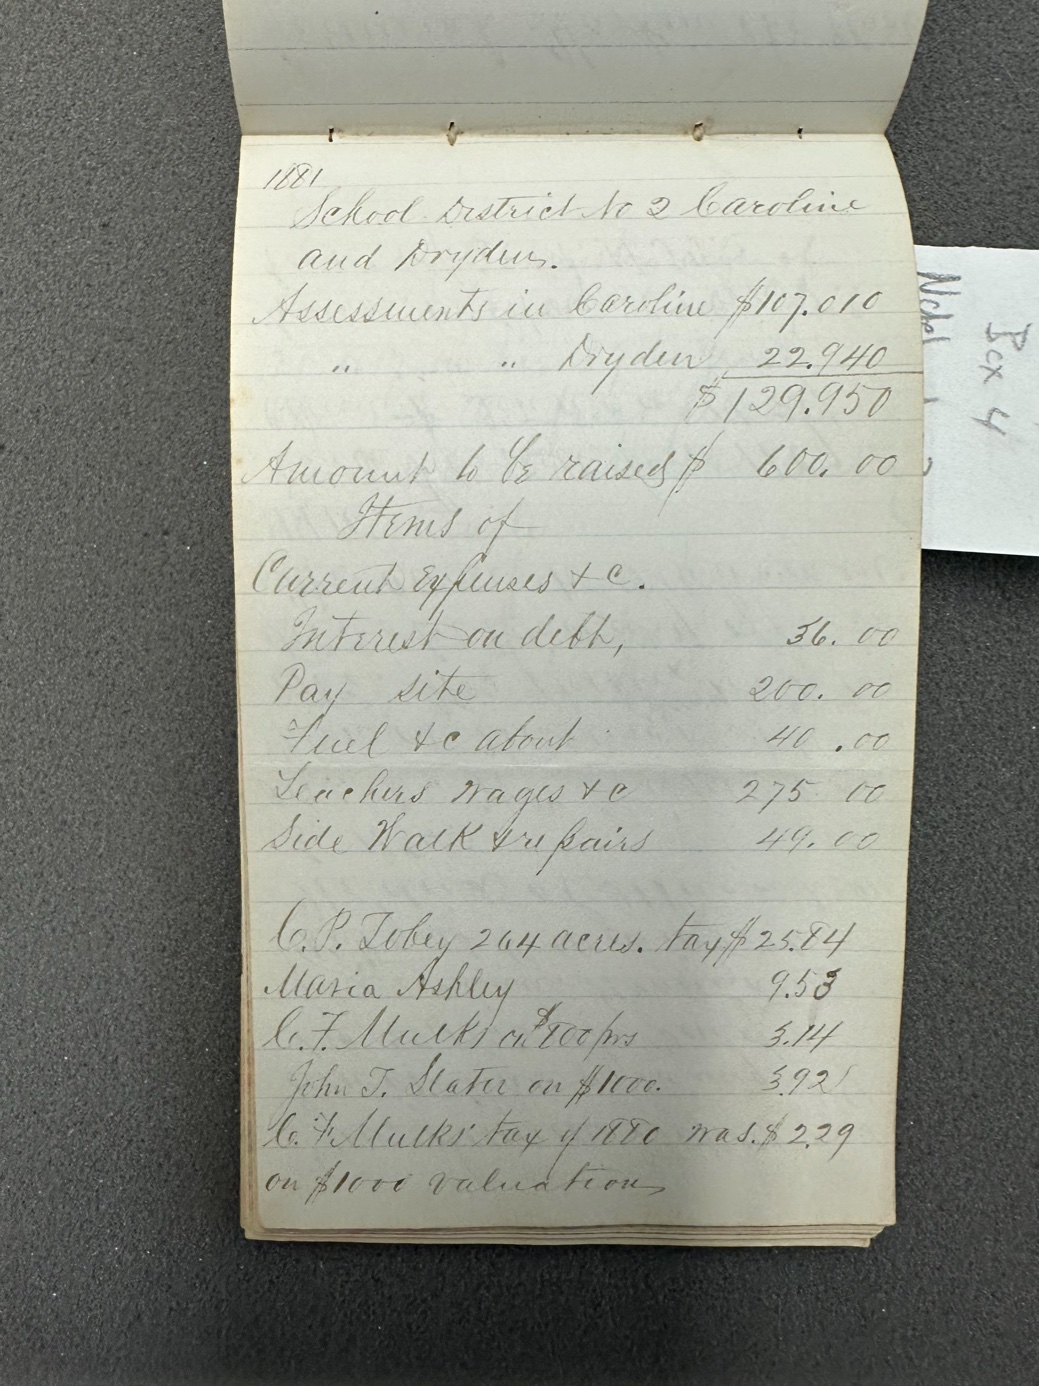 1881
School District No 2 Caroline
and Dryden.
Assessments in Caroline $107.010
" " Dryden 22.940
$129.950
Amount to be raised $ 600.00
Items of
Current Expenses & c.
Interest on debt, 36.00
Pay site 200.00
Fuel & c about 40.00
Teachers wages & c 275 00
Side Walk & repairs 49.00
C. P. Tobey 264 acres. tax $25.84
Maria Ashley 9.53
C. F. Mulks on $800 prs 3.14
John T. Slater on $1000. 3.92
C. F. Mulks' tax of 1880 was. $2.29
on $1000 valuation
Box 4